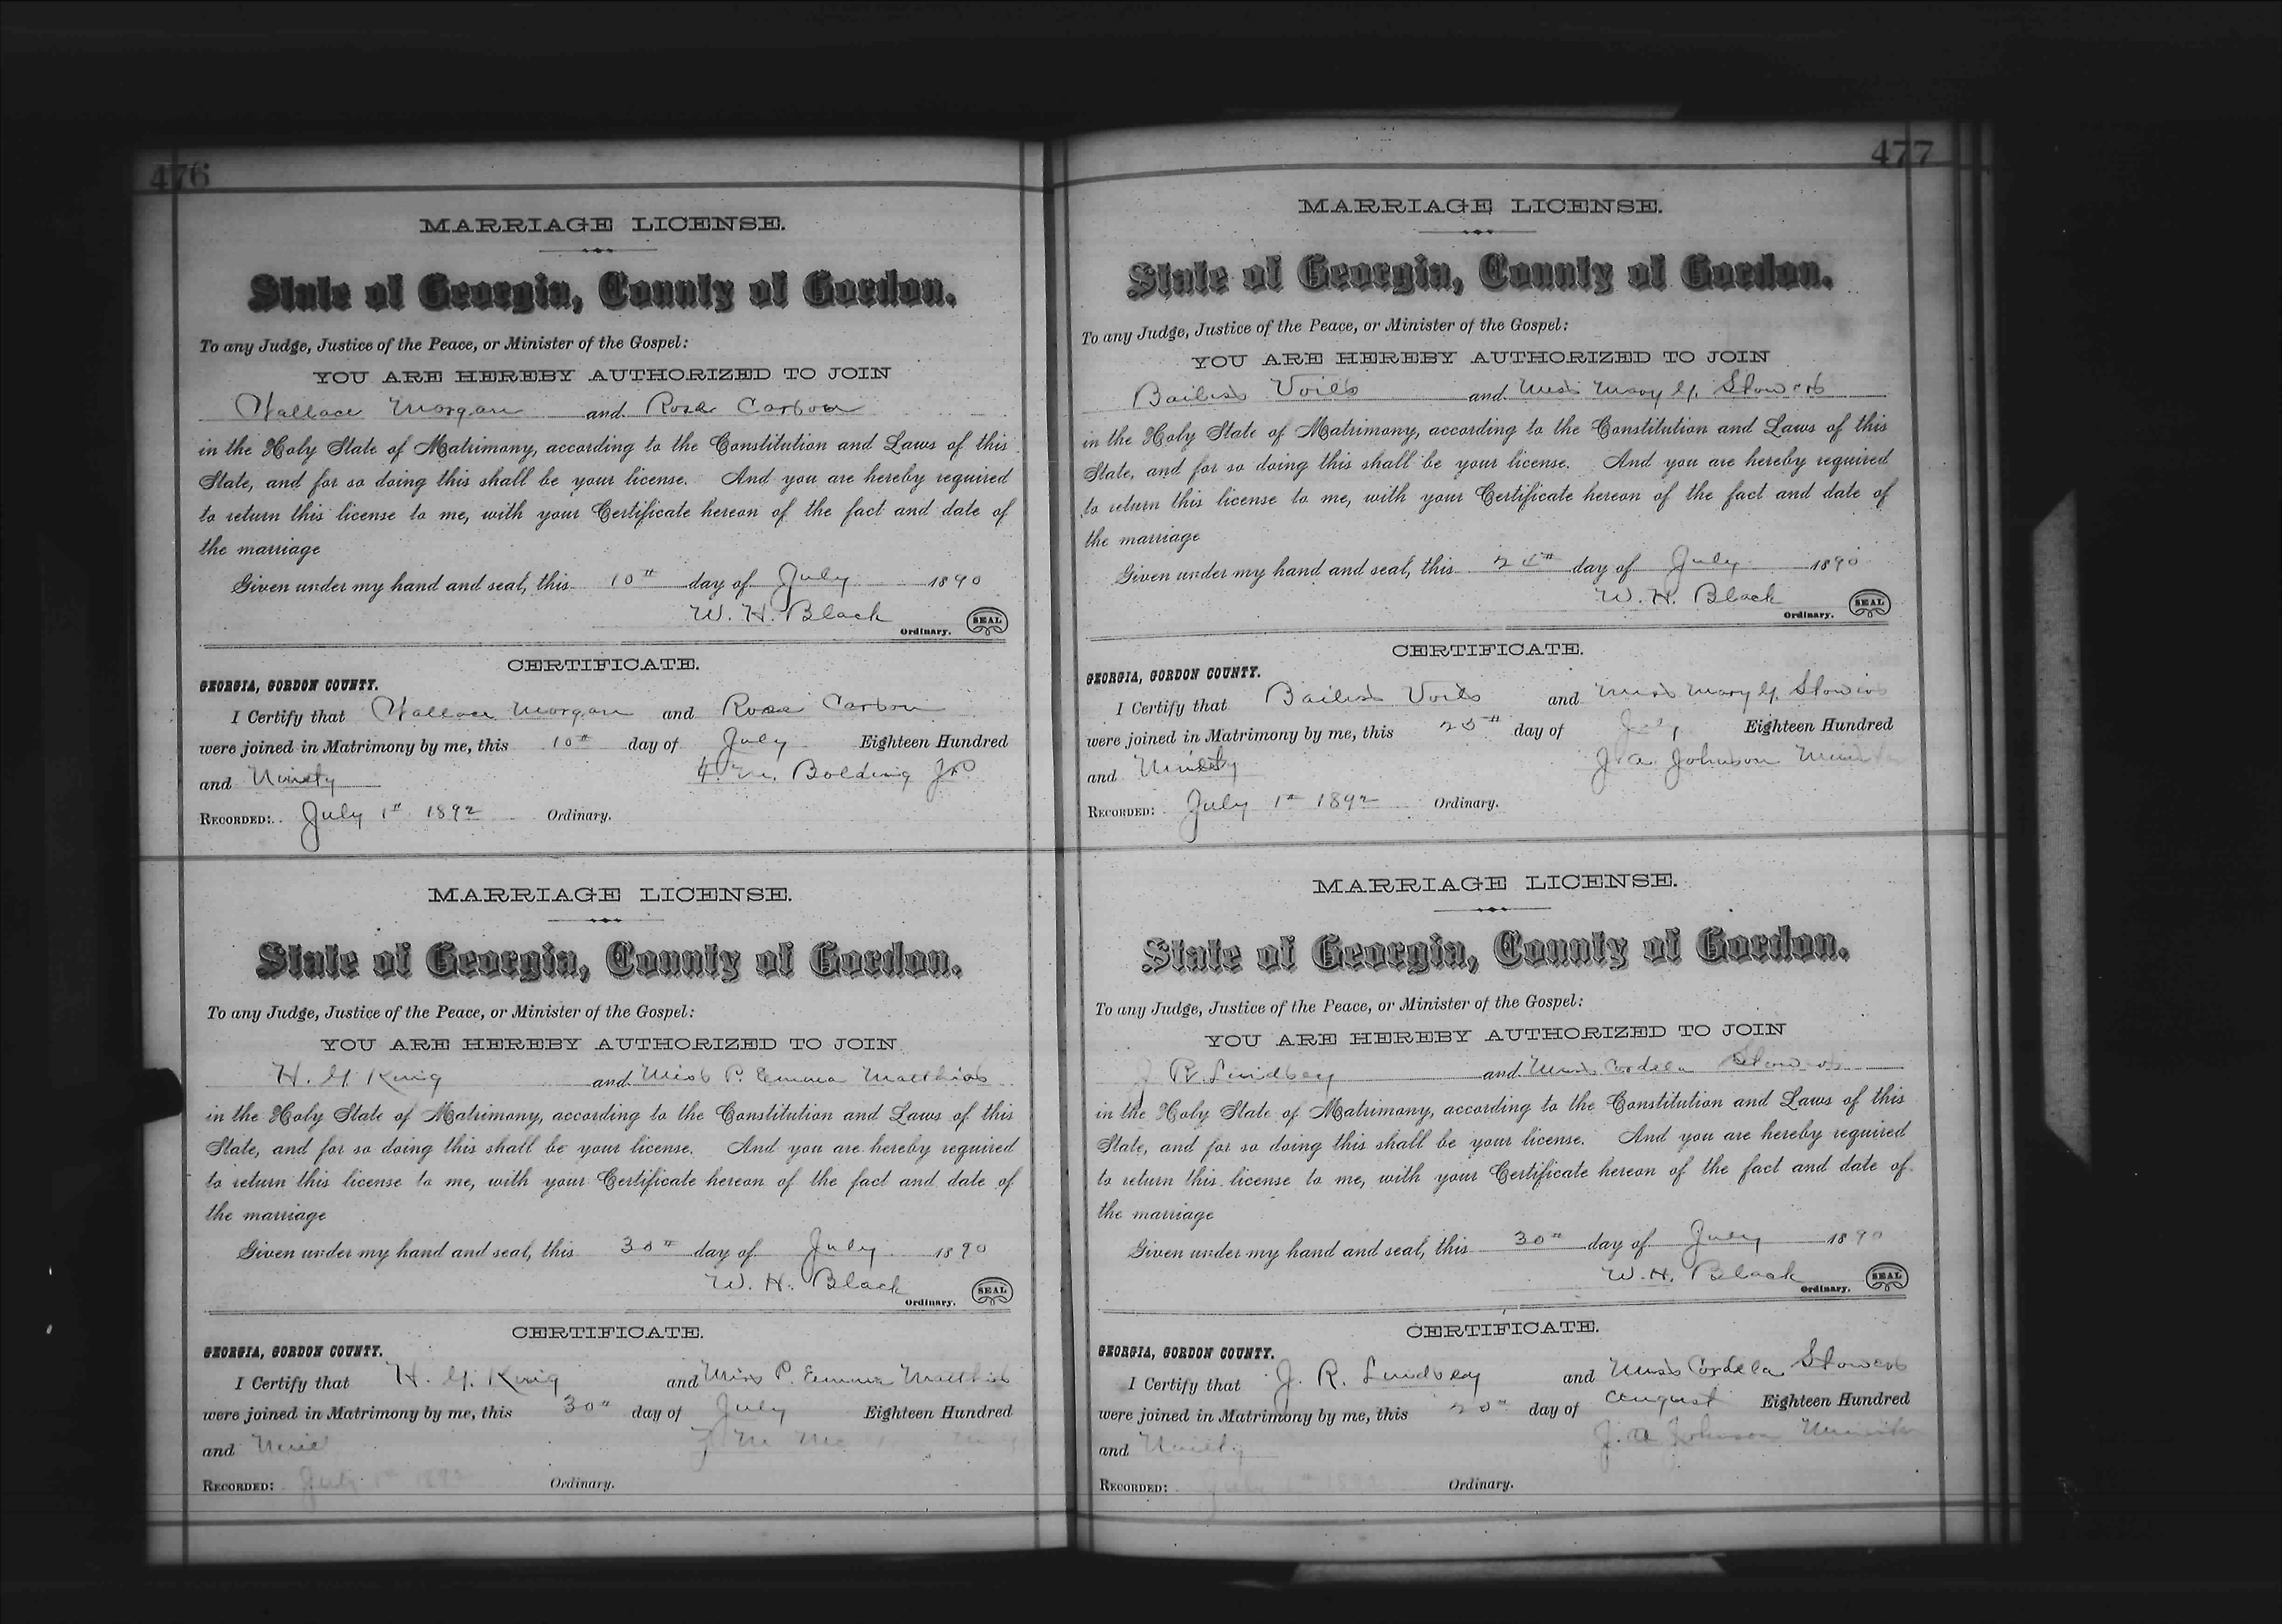 476
MARRIAGE LICENSE.
State of Georgia, County of Gordon.
To any Judge, Justice of the Peace, or Minister of the Gospel:
YOU ARE HEREBY AUTHORIZED TO JOIN
Wallace Morgan and Rosa Carbon
in the Holy State of Matrimony, according to the Constitution and Laws of this
State, and for so doing this shall be your license. And you are hereby required
to return this license to me, with your Certificate hereon of the fact and date of
the marriage
Given under my hand and seal, this 10th day of July 1890
W. H. Black
Ordinary. SEAL
CERTIFICATE.
GEORGIA, GORDON COUNTY.
I Certify that Wallace Morgan and Rosa Carbon
were joined in Matrimony by me, this 10th day of July Eighteen Hundred
and Ninety Bolding
RECORDED: July 1st 1892 Ordinary.
MARRIAGE LICENSE.
State of Georgia, County of Gordon.
To any Judge, Justice of the Peace, or Minister of the Gospel:
YOU ARE HEREBY AUTHORIZED TO JOIN
H. Y. King and Miss P. Emma Matthis
in the Holy State of Matrimony, according to the Constitution and Laws of this
State, and for so doing this shall be your license. And you are hereby required
to return this license to me, with your Certificate hereon of the fact and date of
the marriage
Given under my hand and seal, this 30th day of July 1890
W. H. Black
Ordinary. SEAL
CERTIFICATE.
GEORGIA, GORDON COUNTY.
I Certify that H. Y. King and Miss P. Emma Matthis
were joined in Matrimony by me, this 30th day of July Eighteen Hundred
and
RECORDED: July 1st 1892 Ordinary.
477
MARRIAGE LICENSE.
State of Georgia, County of Gordon.
To any Judge, Justice of the Peace, or Minister of the Gospel:
YOU ARE HEREBY AUTHORIZED TO JOIN
Bailis Voils and Miss Mary Y. Stowers
in the Holy State of Matrimony, according to the Constitution and Laws of this
State, and for so doing this shall be your license. And you are hereby required
to return this license to me, with your Certificate hereon of the fact and date of
the marriage
Given under my hand and seal, this 24th day of July 1890
W. H. Black
Ordinary. SEAL
CERTIFICATE.
GEORGIA, GORDON COUNTY.
I Certify that Bailis Voils and Miss Mary Y. Stowers
were joined in Matrimony by me, this day of July Eighteen Hundred
and Ninety J. A. Johnson Minister
RECORDED: July 1st 1892 Ordinary.
MARRIAGE LICENSE.
State of Georgia, County of Gordon.
To any Judge, Justice of the Peace, or Minister of the Gospel:
YOU ARE HEREBY AUTHORIZED TO JOIN
J. R. Lindsey and Miss Cordela Stowers
in the Holy State of Matrimony, according to the Constitution and Laws of this
State, and for so doing this shall be your license. And you are hereby required
to return this license to me, with your Certificate hereon of the fact and date of
the marriage
Given under my hand and seal, this 30th day of July 1890
W. H. Black
Ordinary. SEAL
CERTIFICATE.
GEORGIA, GORDON COUNTY.
I Certify that J. R. Lindsey and Miss Cordela Stowers
were joined in Matrimony by me, this 20th day of August Eighteen Hundred
and Ninety J. A. Johnson Minister
RECORDED: July 1st 1892 Ordinary.